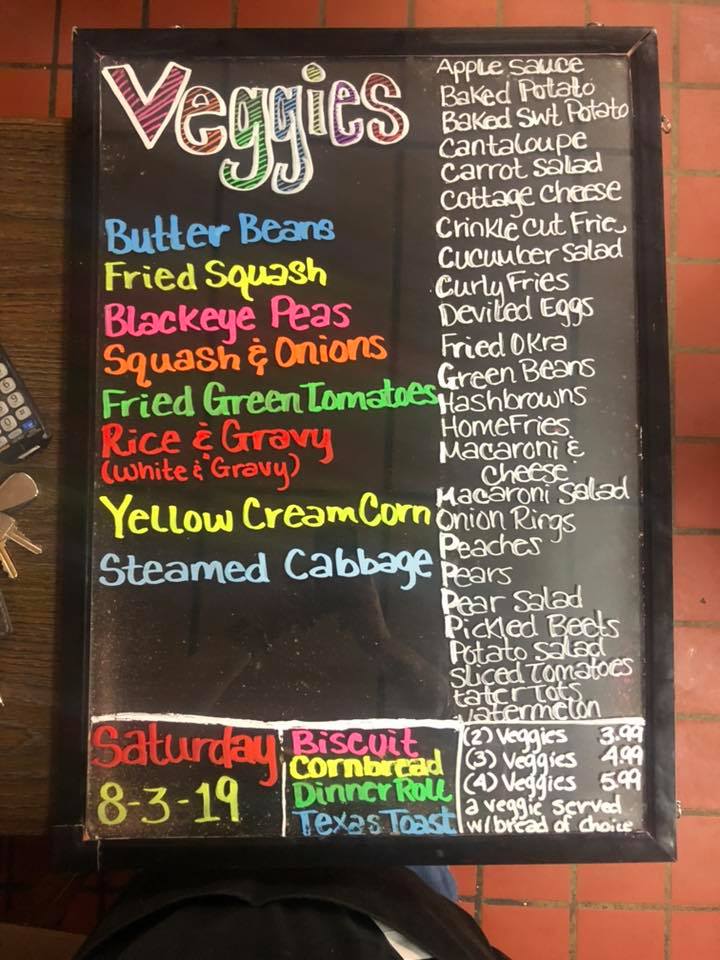 Veggies
Butter Beans
Fried Squash
Blackeye Peas
Squash & Onions
Fried Green Tomatoes
Rice & Gravy
(White & Gravy)
Yellow Cream Corn
Steamed Cabbage
Apple Sauce
Baked Potato
Baked Swt Potato
Cantaloupe
Carrot Salad
Cottage Cheese
Crinkle Cut Fries
Cucumber Salad
Curly Fries
Deviled Eggs
Fried Okra
Green Beans
Hashbrowns
Home Fries
Macaroni &
Cheese
Macaroni Salad
Onion Rings
Peaches
Pears
Pear Salad
Pickled Beets
Potato Salad
Sliced Tomatoes
tater tots
Watermelon
Saturday
8-3-19
Biscuit
Cornbread
Dinner Roll
Texas Toast
(2) Veggies 3.99
(3) Veggies 4.99
(4) Veggies 5.99
a veggie served
w/ bread of choice